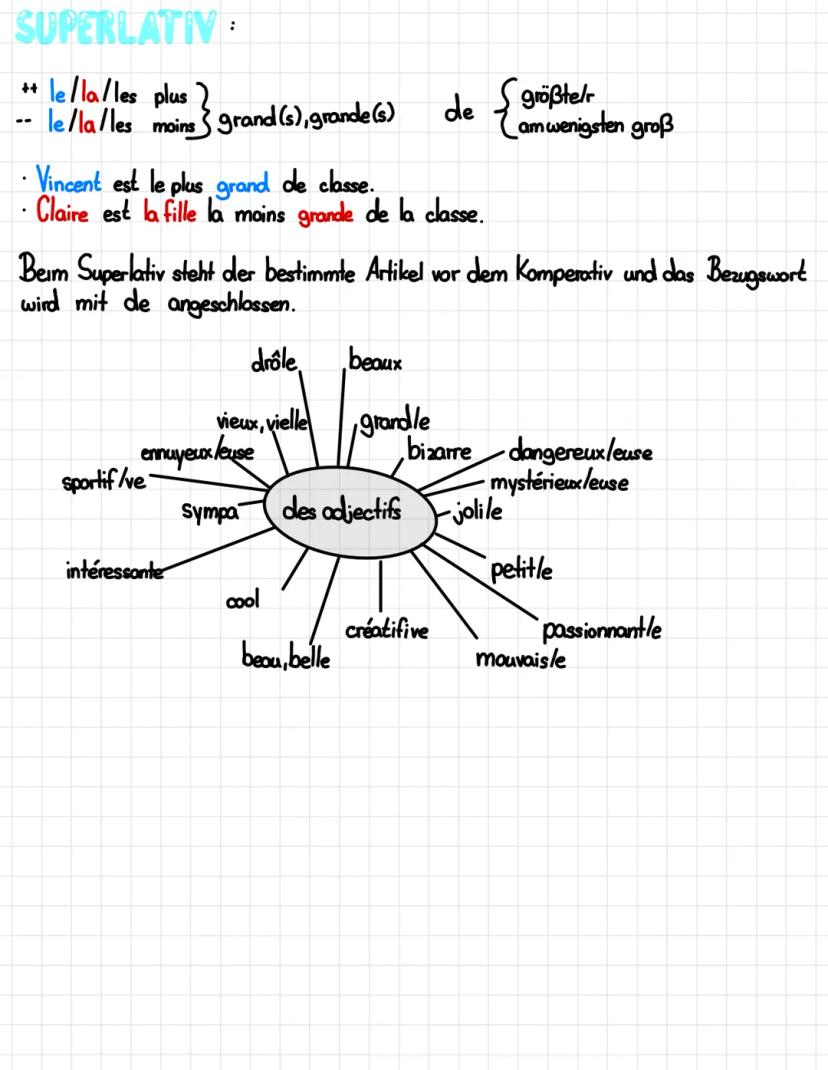 SUPERLATIV :
++ le/la/les plus
-- le/la/les moins
grand(s), grande(s)
de
größte/r
am wenigsten groß
· Vincent est le plus grand de classe.
· Claire est la fille la moins grande de la classe.
Beim Superlativ steht der bestimmte Artikel vor dem Komperativ und das Bezugswort
wird mit de angeschlossen.
drôle
beaux
vieux, vielle
grand/e
ennuyeux/euse
bizarre
dangereux/euse
sportif/ve
mystérieux/euse
sympa
des adjectifs
joli/e
intéressante
petit/e
cool
créatif/ive
passionnant/e
beau, belle
mauvais/e